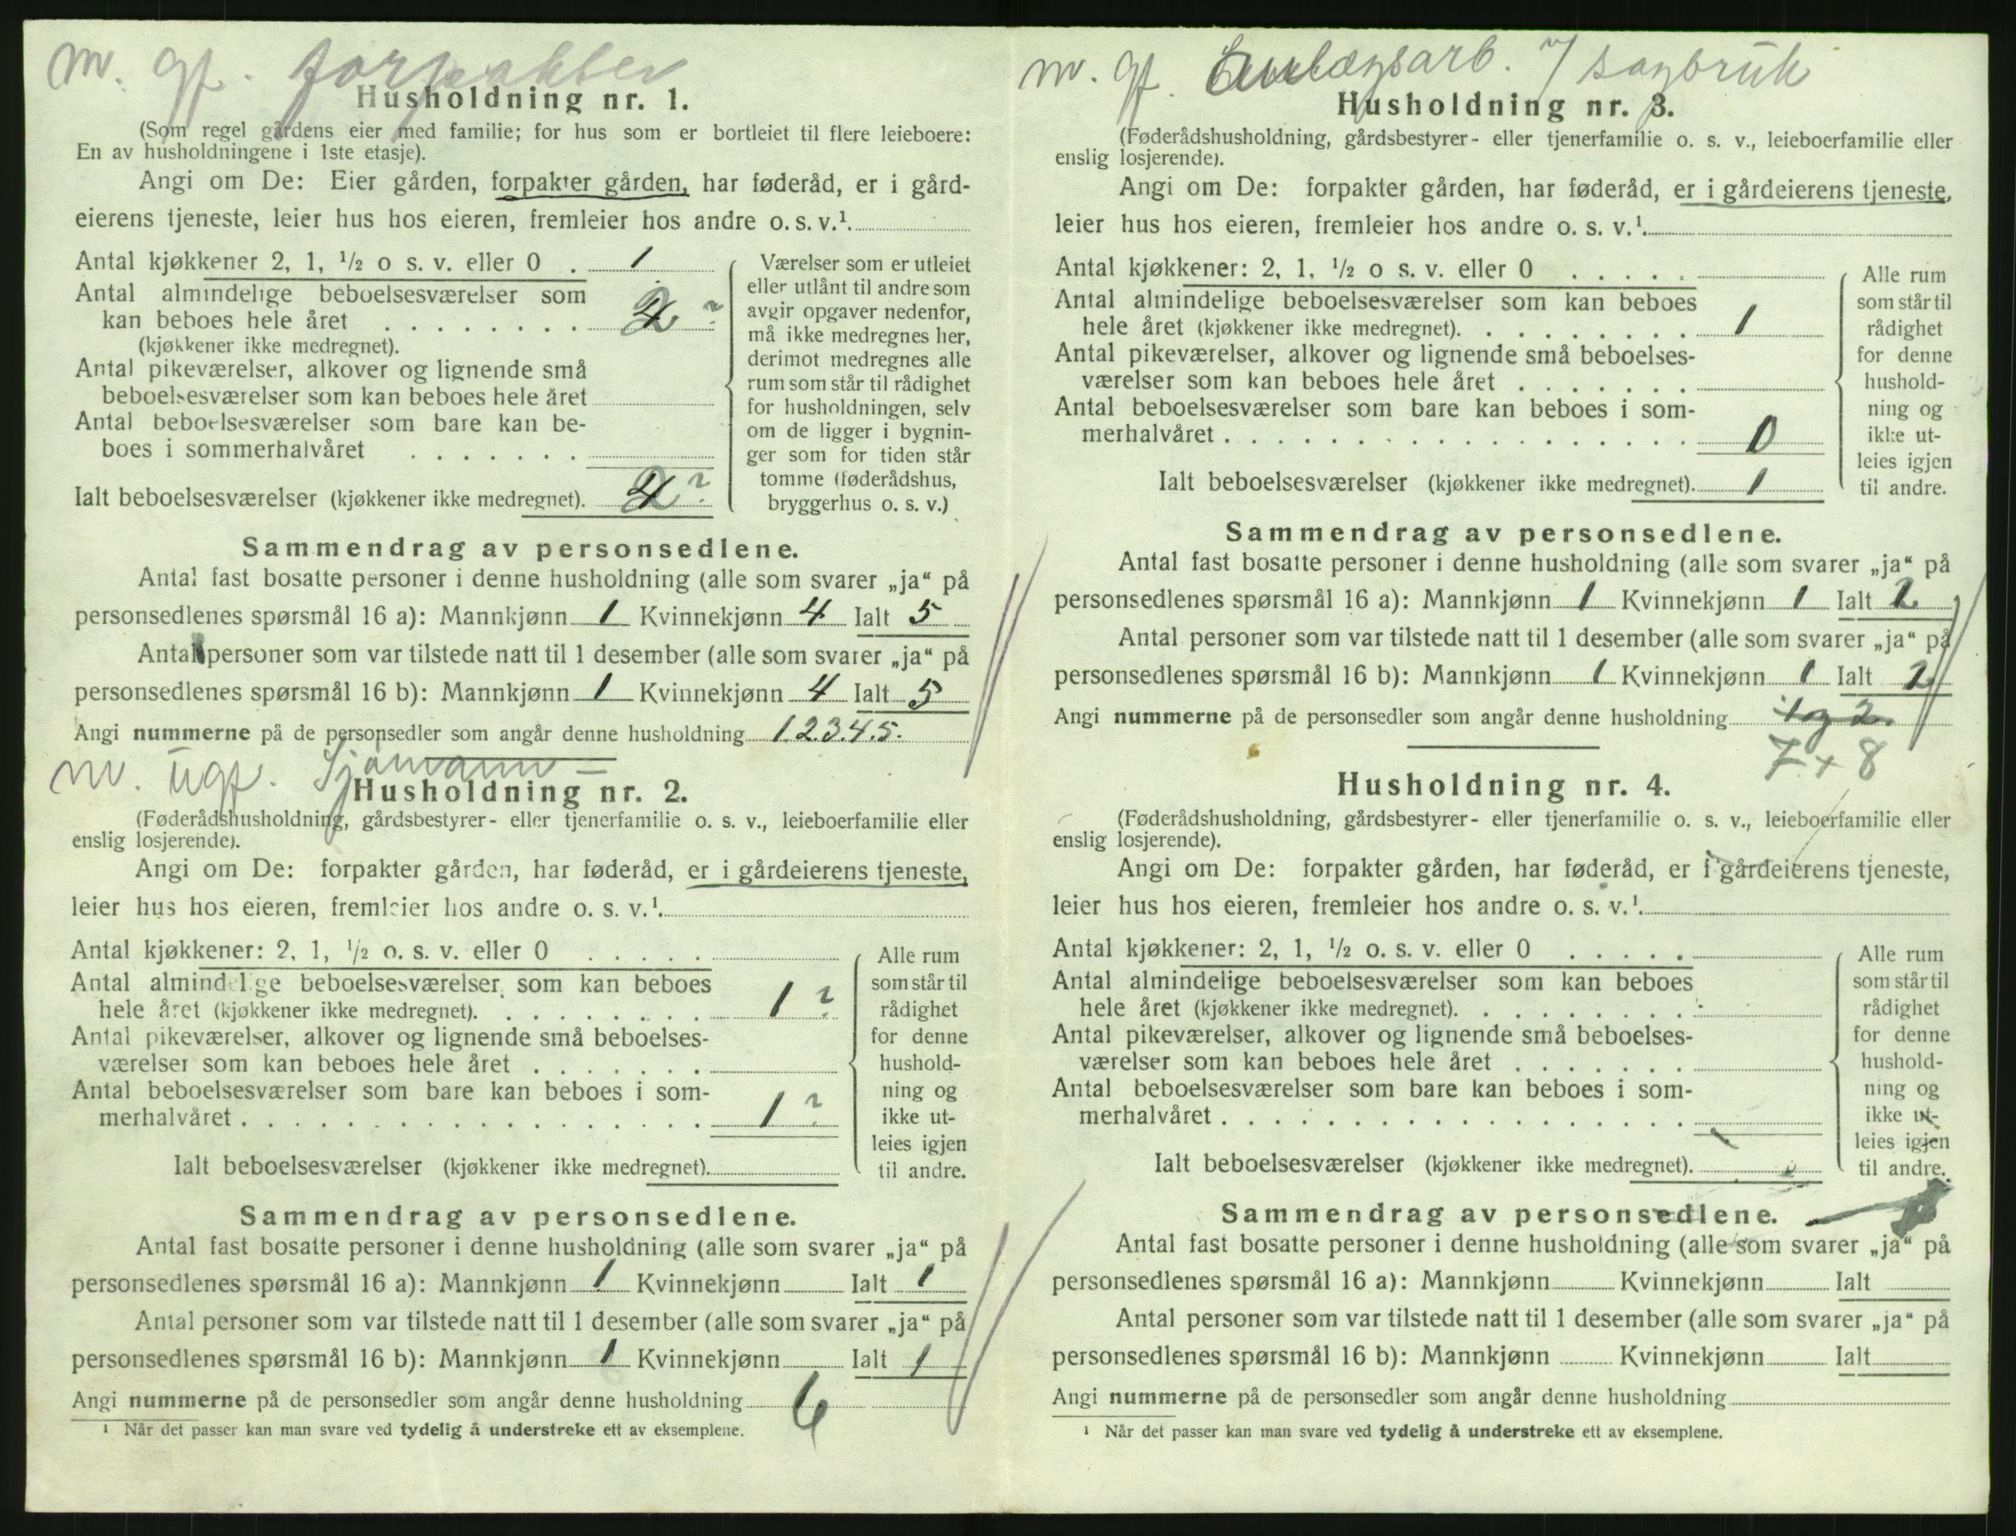 m. gf. forpakter
Husholdning nr. 1.
(Som regel gårdens eier med familie; for hus som er bortleiet til flere leieboere:
En av husholdningene i 1ste etasje).
Angi om De: Eier gården, forpakter gården, har føderåd, er i gård-
eierens tjeneste, leier hus hos eieren, fremleier hos andre o. s. v.¹.
Antal kjøkkener 2, 1, ½ o s. v. eller 0 . 1
Antal almindelige beboelsesværelser som
kan beboes hele året . . . . . . . . 2 ?
(kjøkkener ikke medregnet).
Antal pikeværelser, alkover og lignende små
beboelsesværelser som kan beboes hele året
Antal beboelsesværelser som bare kan be-
boes i sommerhalvåret . . . . . . .
Ialt beboelsesværelser (kjøkkener ikke medregnet). 2 ?
Værelser som er utleiet
eller utlånt til andre som
avgir opgaver nedenfor,
må ikke medregnes her,
derimot medregnes alle
rum som står til rådighet
for husholdningen, selv
om de ligger i bygnin-
ger som for tiden står
tomme (føderådshus,
bryggerhus o. s. v.)
Sammendrag av personsedlene.
Antal fast bosatte personer i denne husholdning (alle som svarer „ja“ på
personsedlenes spørsmål 16 a): Mannkjønn 1 Kvinnekjønn 4 Ialt 5
Antal personer som var tilstede natt til 1 desember (alle som svarer „ja“ på
personsedlenes spørsmål 16 b): Mannkjønn 1 Kvinnekjønn 4 Ialt 5
Angi nummerne på de personsedler som angår denne husholdning 1.2.3.4.5.
m. ugf. Sjømann
Husholdning nr. 2.
(Føderådshusholdning, gårdsbestyrer- eller tjenerfamilie o. s. v., leieboerfamilie eller
enslig losjerende).
Angi om De: forpakter gården, har føderåd, er i gårdeierens tjeneste,
leier hus hos eieren, fremleier hos andre o. s. v.¹.
Antal kjøkkener: 2, 1, ½ o. s. v. eller 0 . . . . .
Antal almindelige beboelsesværelser som kan beboes
hele året (kjøkkener ikke medregnet). . . . . . . . . 1 ?
Antal pikeværelser, alkover og lignende små beboelses-
værelser som kan beboes hele året . . . . . . .
Antal beboelsesværelser som bare kan beboes i som-
merhalvåret . . . . . . . . . . . . . . . . . . 1 ?
Ialt beboelsesværelser (kjøkkener ikke medregnet).
Alle rum
som står til
rådighet
for denne
hushold-
ning og
ikke ut-
leies igjen
til andre.
Sammendrag av personsedlene.
Antal fast bosatte personer i denne husholdning (alle som svarer „ja“ på
personsedlenes spørsmål 16 a): Mannkjønn 1 Kvinnekjønn Ialt 1
Antal personer som var tilstede natt til 1 desember (alle som svarer „ja“ på
personsedlenes spørsmål 16 b): Mannkjønn 1 Kvinnekjønn Ialt 1
Angi nummerne på de personsedler som angår denne husholdning 6
¹ Når det passer kan man svare ved tydelig å understreke ett av eksemplene.
m. gf. Anlægsarb. v/ sagbruk
Husholdning nr. 3.
(Føderådshusholdning, gårdsbestyrer- eller tjenerfamilie o. s. v., leieboerfamilie eller
enslig losjerende).
Angi om De: forpakter gården, har føderåd, er i gårdeierens tjeneste,
leier hus hos eieren, fremleier hos andre o. s. v.¹.
Antal kjøkkener: 2, 1, ½ o s. v. eller 0 . . . . .
Antal almindelige beboelsesværelser som kan beboes
hele året (kjøkkener ikke medregnet). . . . . . . . . 1
Antal pikeværelser, alkover og lignende små beboelses-
værelser som kan beboes hele året . . . . . . .
Antal beboelsesværelser som bare kan beboes i som-
merhalvåret . . . . . . . . . . . . . . . . . . 0
Ialt beboelsesværelser (kjøkkener ikke medregnet). 1
Alle rum
som står til
rådighet
for denne
hushold-
ning og
ikke ut-
leies igjen
til andre.
Sammendrag av personsedlene.
Antal fast bosatte personer i denne husholdning (alle som svarer „ja“ på
personsedlenes spørsmål 16 a): Mannkjønn 1 Kvinnekjønn 1 Ialt 2
Antal personer som var tilstede natt til 1 desember (alle som svarer „ja“ på
personsedlenes spørsmål 16 b): Mannkjønn 1 Kvinnekjønn 1 Ialt 2
Angi nummerne på de personsedler som angår denne husholdning 1 og 2.
7 + 8
Husholdning nr. 4.
(Føderådshusholdning, gårdsbestyrer- eller tjenerfamilie o. s. v., leieboerfamilie eller
enslig losjerende).
Angi om De: forpakter gården, har føderåd, er i gårdeierens tjeneste,
leier hus hos eieren, fremleier hos andre o. s. v.¹.
Antal kjøkkener: 2, 1, ½ o. s. v. eller 0 . . . . .
Antal almindelige beboelsesværelser som kan beboes
hele året (kjøkkener ikke medregnet). . . . . . . . .
Antal pikeværelser, alkover og lignende små beboelses-
værelser som kan beboes hele året . . . . . . .
Antal beboelsesværelser som bare kan beboes i som-
merhalvåret . . . . . . . . . . . . . . . . . .
Ialt beboelsesværelser (kjøkkener ikke medregnet).
Alle rum
som står til
rådighet
for denne
hushold-
ning og
ikke ut-
leies igjen
til andre.
Sammendrag av personsedlene.
Antal fast bosatte personer i denne husholdning (alle som svarer „ja“ på
personsedlenes spørsmål 16 a): Mannkjønn Kvinnekjønn Ialt
Antal personer som var tilstede natt til 1 desember (alle som svarer „ja“ på
personsedlenes spørsmål 16 b): Mannkjønn Kvinnekjønn Ialt
Angi nummerne på de personsedler som angår denne husholdning
¹ Når det passer kan man svare ved tydelig å understreke ett av eksemplene.